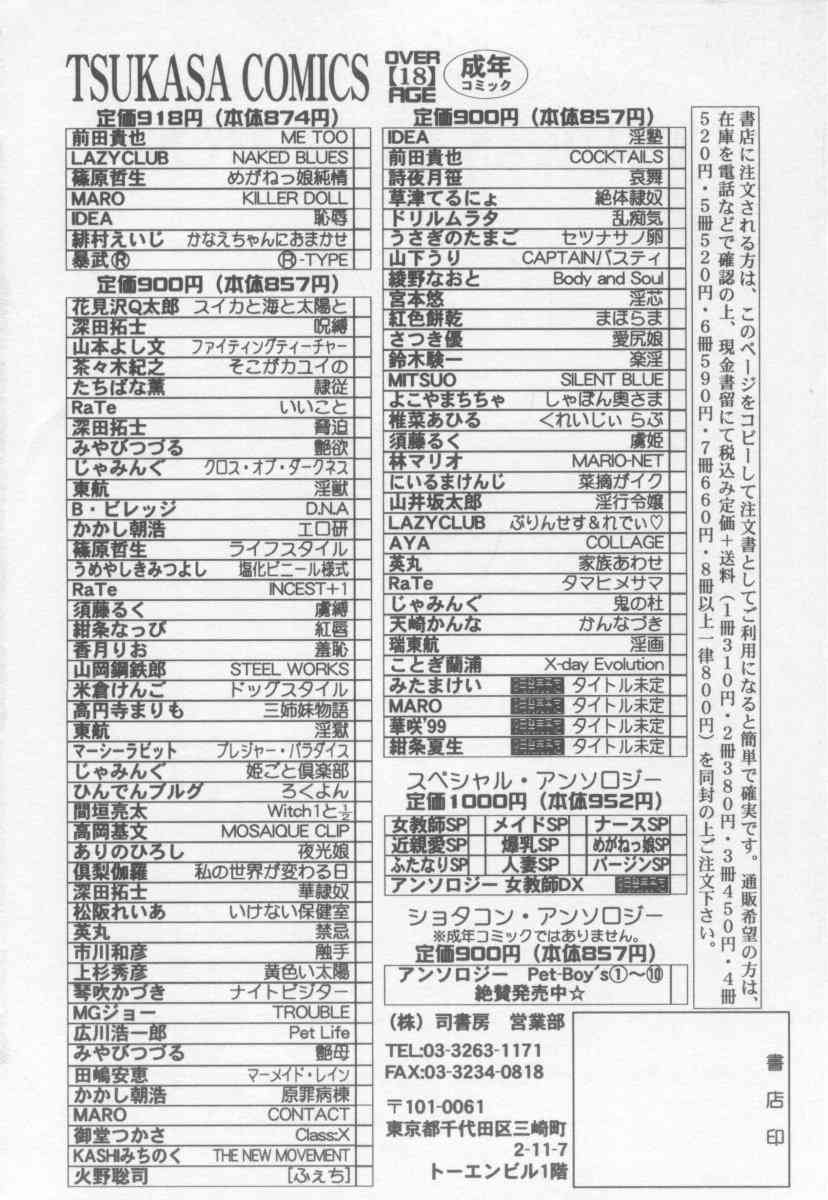 TSUKASA COMICS
OVER
【18】
AGE
成年
コミック
定価918円(本体874円)
前田貴也 ME TOO
LAZYCLUB NAKED BLUES
篠原哲生 めがねっ娘純情
MARO KILLER DOLL
IDEA 恥辱
緋村えいじ かなえちゃんにおまかせ
暴武Ⓡ Ⓡ-TYPE
定価900円(本体857円)
花見沢Q太郎 スイカと海と太陽と
深田拓士 呪縛
山本よし文 ファイティングティーチャー
茶々木紀之 そこがカユイの
たちばな薫 隷従
RaTe いいこと
深田拓士 脅迫
みやびつづる 艶欲
じゃみんぐ クロス・オブ・ダークネス
東航 淫獣
B・ビレッジ D.N.A
かかし朝浩 エロ研
篠原哲生 ライフスタイル
うめやしきみつよし 塩化ビニール様式
RaTe INCEST+1
須藤るく 虜縛
紺条なっぴ 紅唇
香月りお 羞恥
山岡鋼鉄郎 STEEL WORKS
米倉けんご ドッグスタイル
高円寺まりも 三姉妹物語
東航 淫獄
マーシーラビット プレジャー・パラダイス
じゃみんぐ 姫ごと倶楽部
ひんでんブルグ ろくよん
間垣亮太 Witch1と½
高岡基文 MOSAIQUE CLIP
ありのひろし 夜光娘
倶梨伽羅 私の世界が変わる日
深田拓士 華隷奴
松阪れいあ いけない保健室
英丸 禁忌
市川和彦 触手
上杉秀彦 黄色い太陽
琴吹かづき ナイトビジター
MGジョー TROUBLE
広川浩一郎 Pet Life
みやびつづる 艶母
田嶋安恵 マーメイド・レイン
かかし朝浩 原罪病棟
MARO CONTACT
御堂つかさ Class:X
KASHIみちのく THE NEW MOVEMENT
火野聡司 [ふぇち]
定価900円(本体857円)
IDEA 淫塾
前田貴也 COCKTAILS
詩夜月笹 哀舞
草津てるにょ 絶体隷奴
ドリルムラタ 乱痴気
うさぎのたまご セツナサノ卵
山下うり CAPTAINバスティ
綾野なおと Body and Soul
宮本悠 淫芯
紅色餅乾 まほらま
さつき優 愛尻娘
鈴木験一 楽淫
MITSUO SILENT BLUE
よこやまちちゃ しゃぼん奥さま
椎菜あひる くれいじぃ らぶ
須藤るく 虜姫
林マリオ MARIO-NET
にいるまけんじ 菜摘がイク
山井坂太郎 淫行令嬢
LAZYCLUB ぷりんせす&れでぃ♡
AYA COLLAGE
英丸 家族あわせ
RaTe タマヒメサマ
じゃみんぐ 鬼の杜
天崎かんな かんなづき
瑞東航 淫画
ことぎ蘭浦 X-day Evolution
みたまけい タイトル未定
MARO タイトル未定
華咲'99 タイトル未定
紺条夏生 タイトル未定
スペシャル・アンソロジー
定価1000円(本体952円)
女教師SP メイドSP ナースSP
近親愛SP 爆乳SP めがねっ娘SP
ふたなりSP 人妻SP バージンSP
アンソロジー 女教師DX
ショタコン・アンソロジー
※成年コミックではありません。
定価900円(本体857円)
アンソロジー Pet-Boy's①〜⑩
絶賛発売中☆
(株)司書房 営業部
TEL:03-3263-1171
FAX:03-3234-0818
〒101-0061
東京都千代田区三崎町
2-11-7
トーエンビル1階
書店印
書店に注文される方は、このページをコピーして注文書としてご利用になると簡単で確実です。通販希望の方は、
在庫を電話などで確認の上、現金書留にて税込み定価+送料(1冊310円・2冊380円・3冊450円・4冊
520円・5冊520円・6冊590円・7冊660円・8冊以上一律800円)を同封の上ご注文下さい。